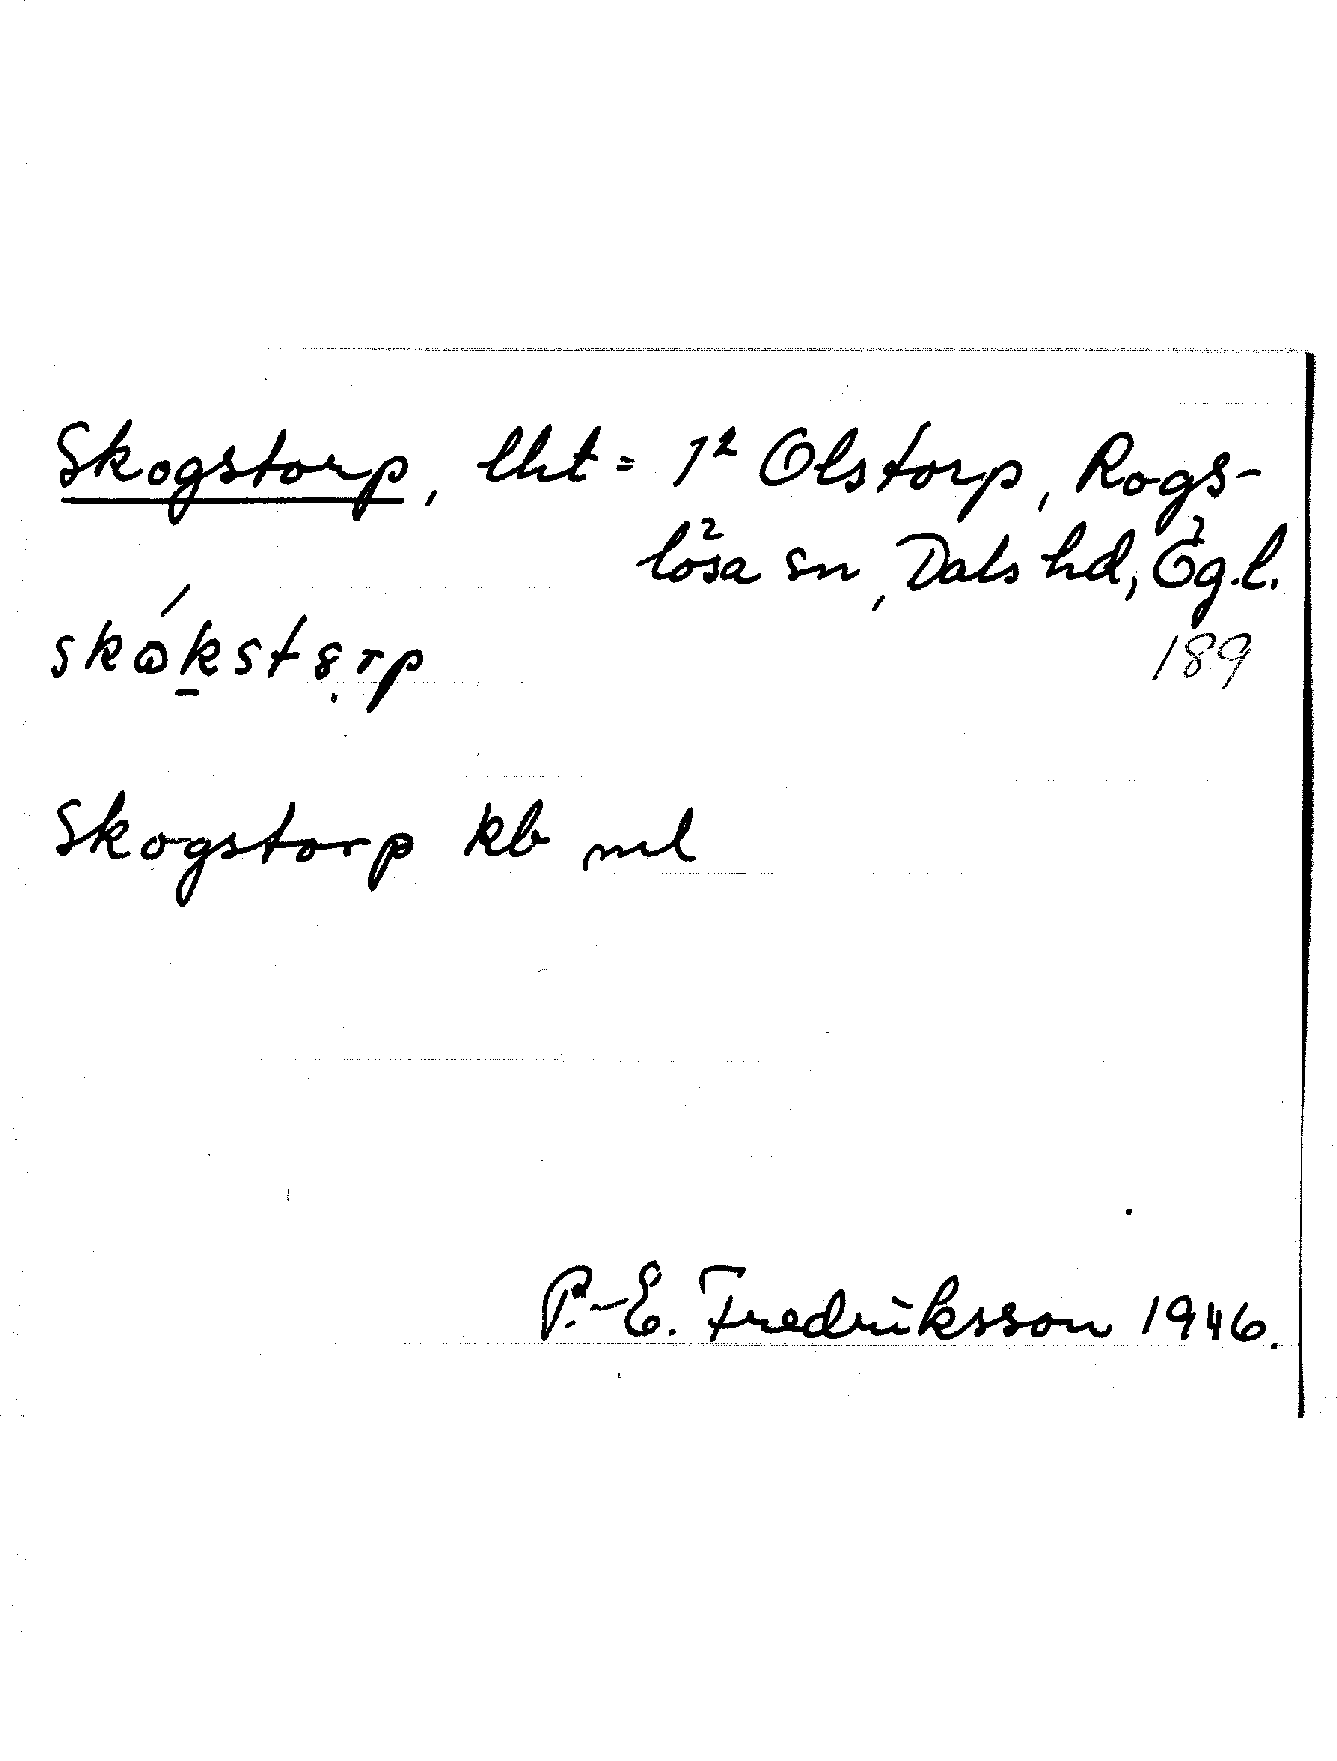 Skogstorp, lht = 1² Olstorp, Rogs-
lösa sn, Dals hd, Ög.l.
189
Skogstorp kb ml
P.-E. Fredriksson 1946.